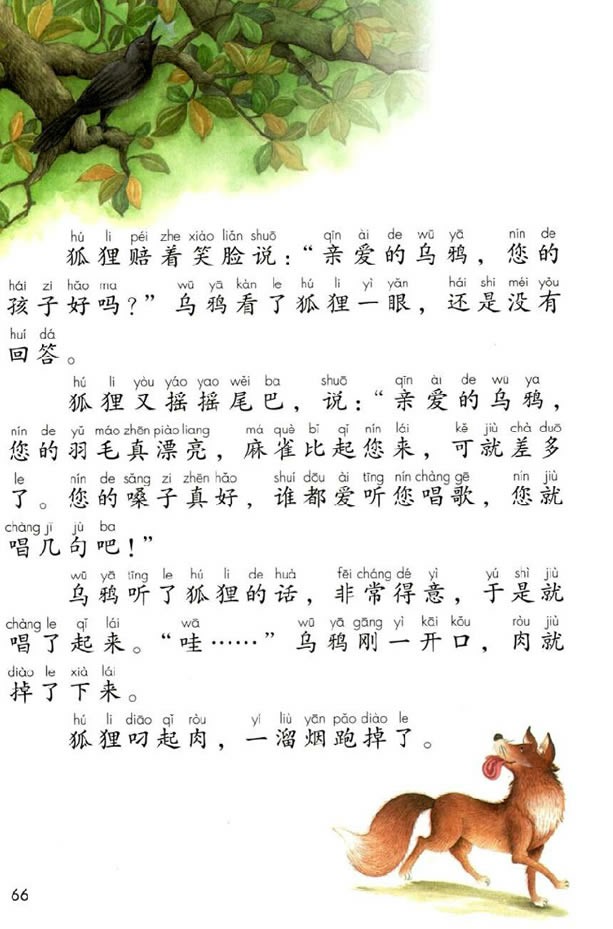 hú li péi zhe xiào liǎn shuō qīn ài de wū yā nín de
狐狸赔着笑脸说：“亲爱的乌鸦，您的
hái zi hǎo ma wū yā kàn le hú li yì yǎn hái shi méi yǒu
孩子好吗？” 乌鸦看了狐狸一眼，还是没有
huí dá
回答。
hú li yòu yáo yao wěi ba shuō qīn ài de wū ya
狐狸又摇摇尾巴，说：“亲爱的乌鸦，
nín de yǔ máo zhēn piào liang má què bǐ qǐ nín lái kě jiù chà duō
您的羽毛真漂亮，麻雀比起您来，可就差多
le nín de sǎng zi zhēn hǎo shuí dōu ài tīng nín chàng gē nín jiù
了。您的嗓子真好，谁都爱听您唱歌，您就
chàng jǐ jù ba
唱几句吧！”
wū yā tīng le hú li de huà fēi cháng dé yì yú shì jiù
乌鸦听了狐狸的话，非常得意，于是就
chàng le qǐ lái wā wū yā gāng yì kāi kǒu ròu jiù
唱了起来。“哇……” 乌鸦刚一开口，肉就
diào le xià lái
掉了下来。
hú li diāo qǐ ròu yí liù yān pǎo diào le
狐狸叼起肉，一溜烟跑掉了。
66